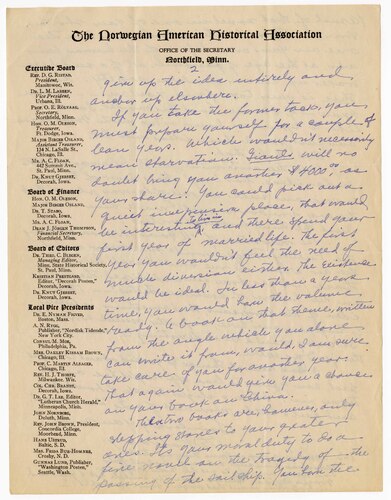 The Norwegian American Historical Association
OFFICE OF THE SECRETARY
Northfield, Minn.
Executive Board
REV. D. G. RISTAD,
President,
Manitowoc, Wis.
DR. L. M. LARSEN,
Vice President,
Urbana, Ill.
PROF. O. E. RÖLVAAG,
Secretary,
Northfield, Minn.
HON. O. M. OLESON,
Treasurer,
Ft. Dodge, Iowa.
MAJOR BIRGER OSLAND,
Assistant Treasurer,
134 N. LaSalle St.
Chicago, Ill.
MR. A. C. FLOAN,
St. Paul, Minn.
DR. KNUT GJERSET,
Decorah, Iowa.
Board of Finance
HON. O. M. OLESON,
MAJOR BIRGER OSLAND,
DR. T. STABO,
Decorah, Iowa.
MR. A. C. FLOAN,
DEAN J. JØRGEN THOMPSON,
Financial Secretary,
Northfield, Minn.
Board of Editors
DR. THEO. C. BLEGEN,
Managing Editor,
Minn. State Historical Society,
St. Paul, Minn.
KRISTIAN PRESTGARD,
Editor, "Decorah Posten,"
Decorah, Iowa.
DR. KNUT GJERSET,
Decorah, Iowa.
Local Vice Presidents
Boston, Mass.
A. N. RYGG,
Publisher, "Nordisk Tidende,"
New York City.
CONSUL M. MOE,
Philadelphia, Pa.
Chicago, Ill.
Chicago, Ill.
Milwaukee, Wis.
COL. CHR. BRANDT,
Decorah, Iowa.
DR. G. T. LEE, Editor,
"Lutheran Church Herald,"
Minneapolis, Minn.
Duluth, Minn.
REV. J. N. BROWN, President,
Concordia College,
Moorhead, Minn.
HANS USTRUD,
Baltic, S. D.
MRS. FRIDA BUE-HOMNES,
Crosby, N. D.
GUNNAR LUND, Publisher,
"Washington Posten,"
Seattle, Wash.
2
give up the idea entirely and
anchor up elsewhere.
If you take the former tack, you
must prepare yourself for a couple of
lean years. Which wouldn't necessarily
mean starvation. Giants will no
doubt bring you another $4000 as
your share. You could pick out a
quiet inexpensive place, that would
be interesting and there spend your
first year of married life. The first
year you wouldn't feel the need of
much diversion either. The existence
would be ideal. In less than a year's
time, you would have the volume
ready. A book on that theme, written
from the angle which you alone
can write it from, would, I am sure
take care of you for another year.
That again would give you a chance
on your book on China.
The two books are, however, only
stepping stones to your greater
ones. It's your moral duty to do a
fine novel on the tragedy of the
passing of the sailship. You have the